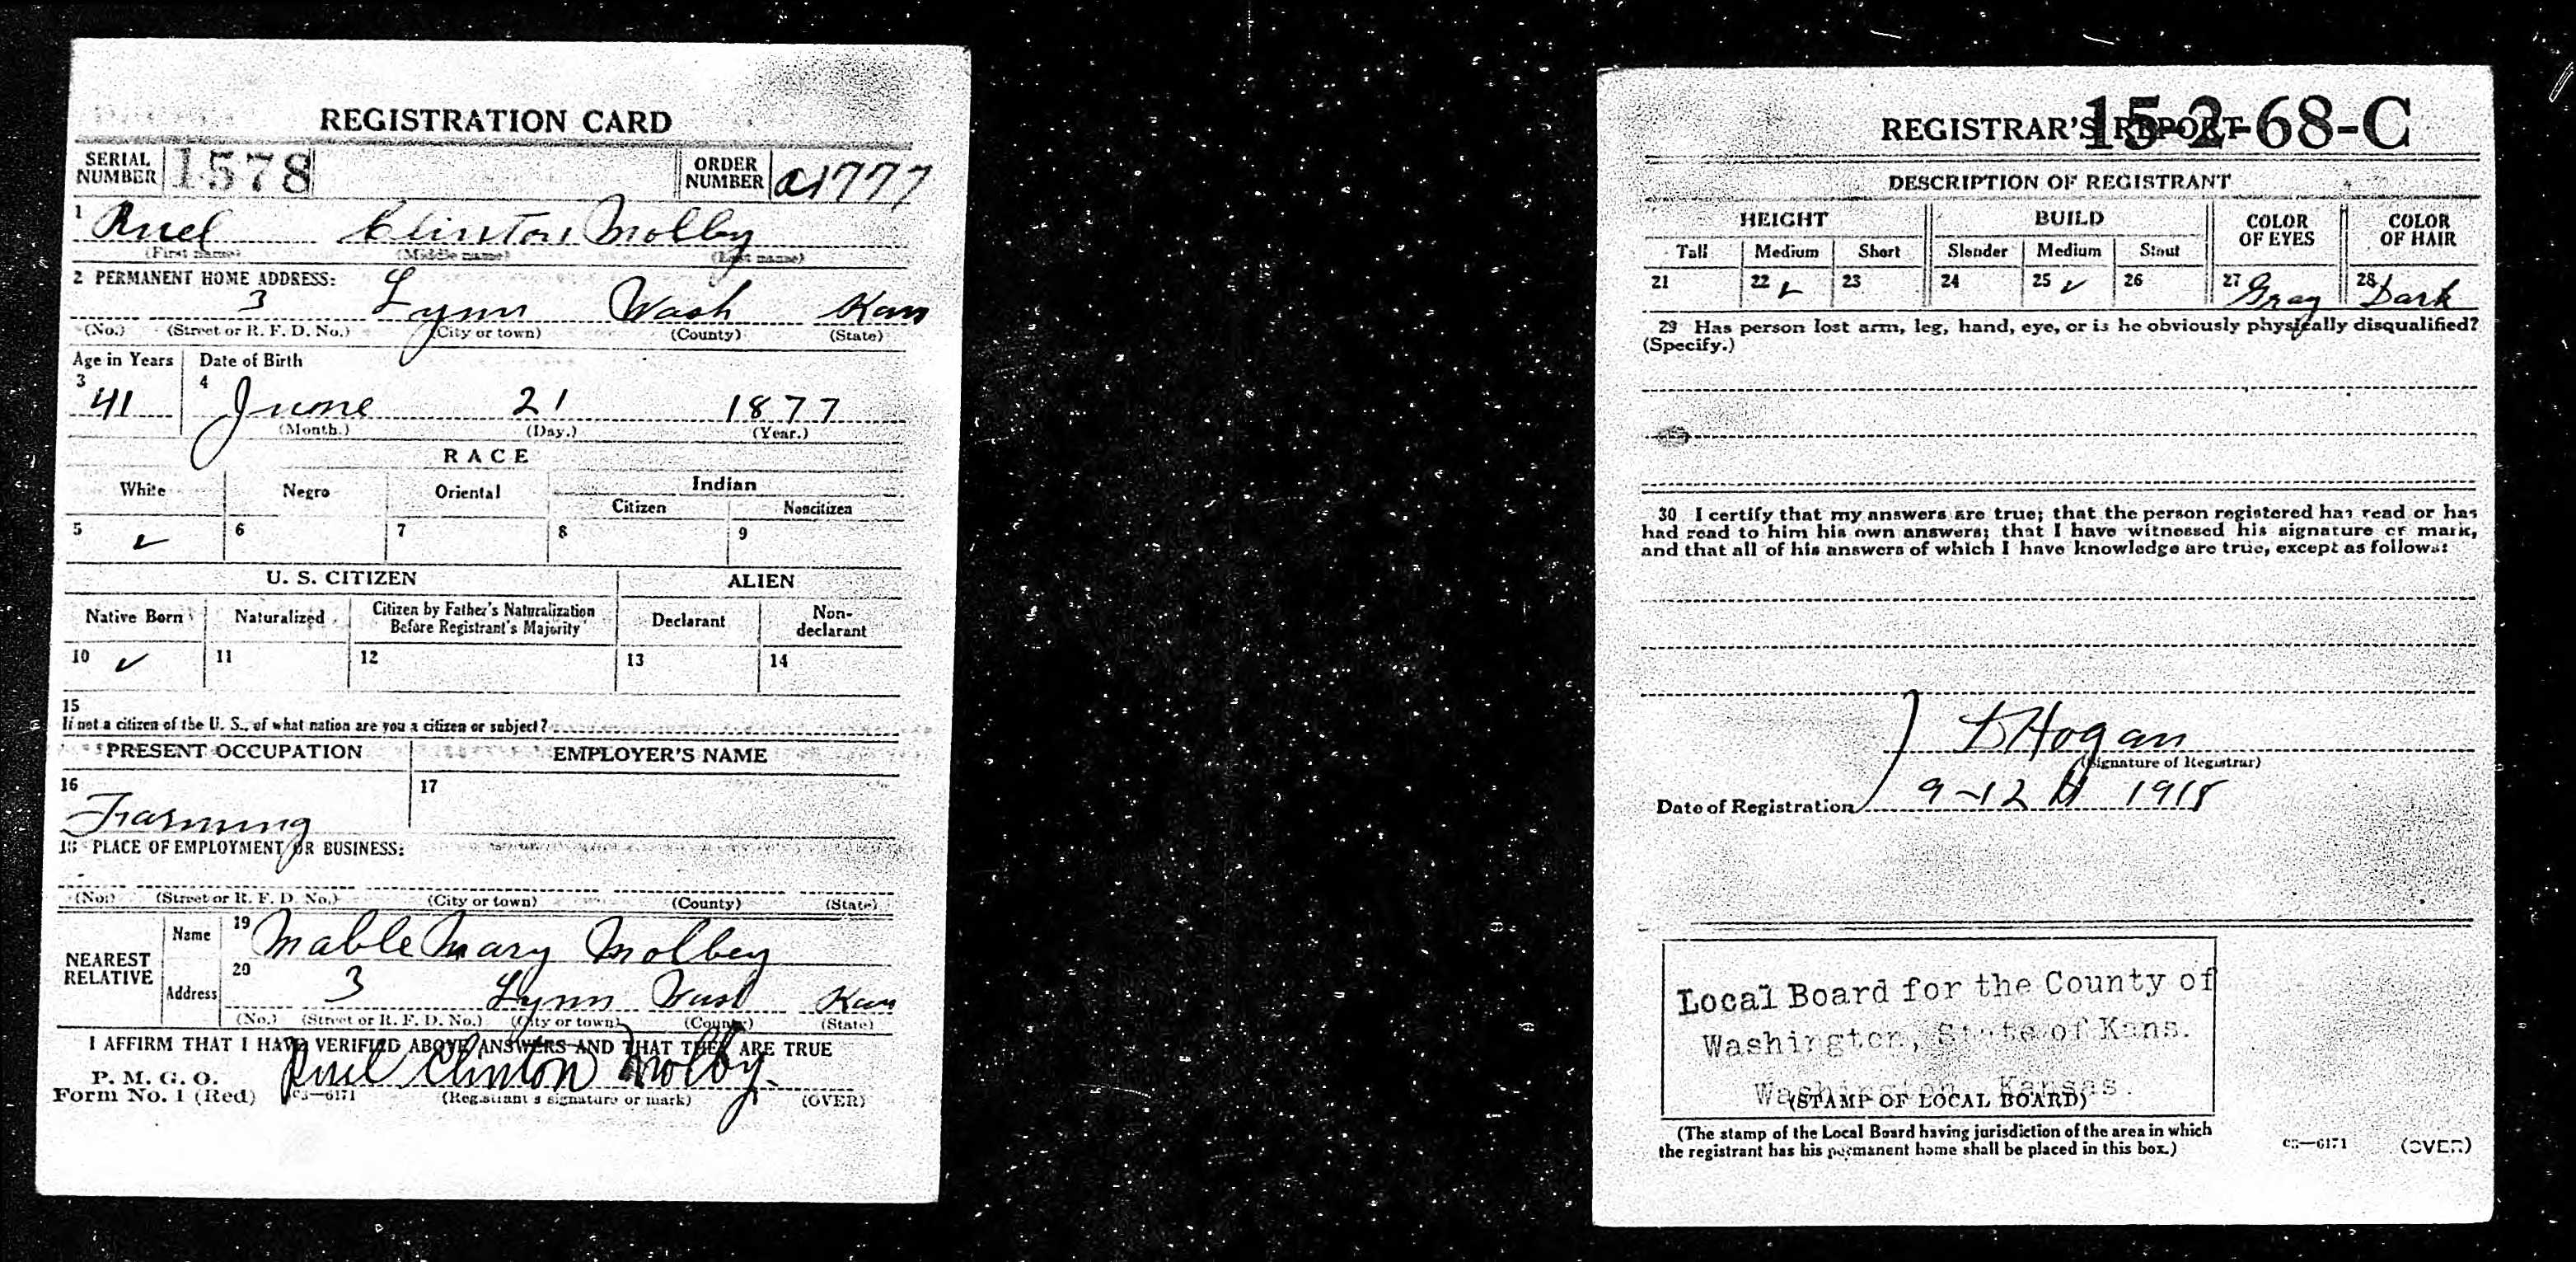 REGISTRATION CARD
SERIAL NUMBER 1578 ORDER NUMBER a1777
1 Ruel Clinton Molby
(First name) (Middle name) (Last name)
2 PERMANENT HOME ADDRESS:
3 Lynn Wash Kan
(No.) (Street or R. F. D. No.) (City or town) (County) (State)
Age in Years Date of Birth
3 4
41 June 21 1877
(Month.) (Day.) (Year.)
RACE
White Negro Oriental Indian
Citizen Noncitizen
5 ✓ 6 7 8 9
U. S. CITIZEN ALIEN
Native Born Naturalized Citizen by Father's Naturalization Before Registrant's Majority Declarant Non-declarant
10 ✓ 11 12 13 14
15
If not a citizen of the U. S., of what nation are you a citizen or subject?
PRESENT OCCUPATION EMPLOYER'S NAME
16 17
Farming
18 PLACE OF EMPLOYMENT OR BUSINESS:
(No.) (Street or R. F. D. No.) (City or town) (County) (State)
NEAREST RELATIVE Name 19 Mable Mary Molbey
Address 20 3 Lynn Wash Kan
(No.) (Street or R. F. D. No.) (City or town) (County) (State)
I AFFIRM THAT I HAVE VERIFIED ABOVE ANSWERS AND THAT THEY ARE TRUE
P. M. G. O.
Form No. 1 (Red) Ruel Clinton Molby.
c3—6171 (Registrant's signature or mark) (OVER)
15-2-68-C
REGISTRAR'S REPORT
DESCRIPTION OF REGISTRANT
HEIGHT BUILD COLOR OF EYES COLOR OF HAIR
Tall Medium Short Slender Medium Stout
21 22 ✓ 23 24 25 ✓ 26 27 Gray 28 Dark
29 Has person lost arm, leg, hand, eye, or is he obviously physically disqualified?
(Specify.)
30 I certify that my answers are true; that the person registered has read or has
had read to him his own answers; that I have witnessed his signature or mark,
and that all of his answers of which I have knowledge are true, except as follows:
Hogan
(Signature of Registrar)
Date of Registration 9-12 1918
Local Board for the County of
Washington, State of Kans.
Washington, Kansas.
(STAMP OF LOCAL BOARD)
(The stamp of the Local Board having jurisdiction of the area in which
the registrant has his permanent home shall be placed in this box.)
c3—6171 (OVER)